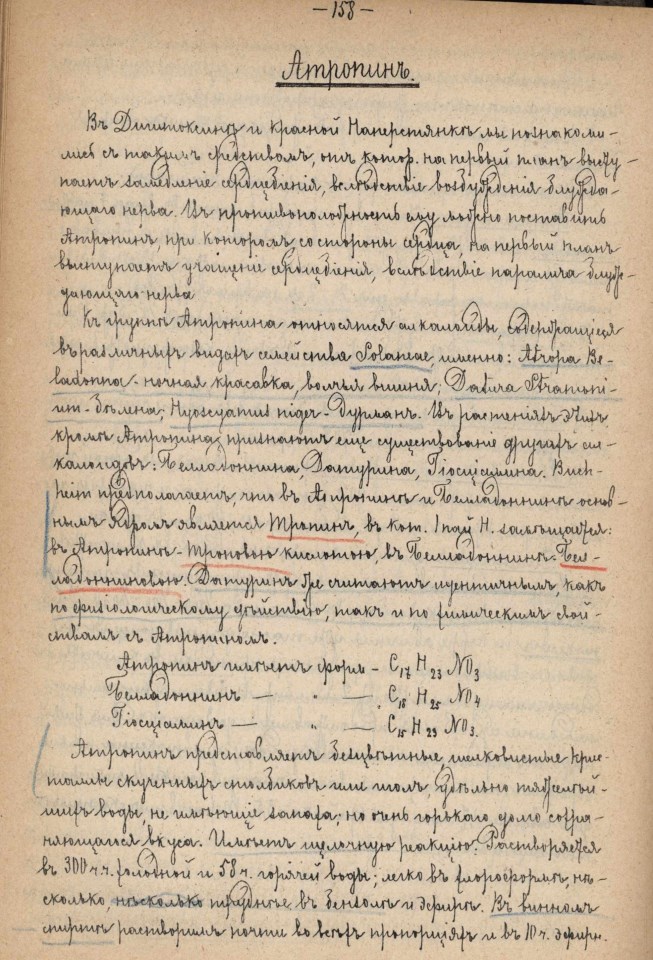 —158—
Атропинъ.
Въ Дигитоксинѣ и красной Наперстянкѣ мы познакоми–
лись съ такимъ средствомъ, отъ котор. на первый планъ высту–
паетъ замедленіе сердцебіенія, вслѣдствіе возбужденія блужда–
ющаго нерва. Въ противоположность ему можно поставить
Атропинъ, при которомъ со стороны сердца, на первый планъ
выступаетъ учащеніе сердцебіенія, вслѣдствіе паралича блуж–
дающаго нерва
Къ группѣ Атропина относятся алкалоиды, содержащіеся
въ различныхъ видахъ семейства Solaneae, именно: Atropa Be–
ladonna - ночная красавка, волчья вишня; Datura Stramoni–
um - бѣлена; Hyoscyamus niger - Дурманъ. Въ растеніяхъ этихъ
кромѣ Атропина признаютъ еще существованіе другихъ ал–
калоидовъ: Белладоннина, Датурина, Гіосціамина. Buch–
heim предполагаетъ, что въ Атропинѣ и Белладоннинѣ основ–
нымъ ядромъ является Тропинъ, въ кот. 1 пай H. замѣщается:
въ Атропинѣ - Троповою кислотою, въ Белладоннинѣ - Бел–
ладонниновою. Датуринъ же считаютъ идентичнымъ, какъ
по физіологическому дѣйствію, такъ и по химическимъ свой–
ствамъ съ Атропиномъ.
Атропинъ имѣетъ форм – C17 H23 NO3
Белладоннинъ — " — C18 H25 NO4
Гіосціаминъ — " — C15 H23 NO3.
Атропинъ представляетъ безцвѣтные, шелковистые крис–
таллы скученныхъ столбиковъ или иголъ, удѣльно тяжелѣй–
шихъ воды, не имѣющіе запаха; но очень горькаго, долго сохра–
няющагося вкуса. Имѣетъ щелочную реакцію. Растворяется
въ 300 ч.ч. холодной и 58 ч. горячей воды; легко въ хлороформѣ, нѣ–
сколько, нѣсколько труднѣе въ бензолѣ и эфирѣ. Въ винномъ
спиртѣ растворимъ почти во всѣхъ пропорціяхъ и въ 10 ч. эфира.